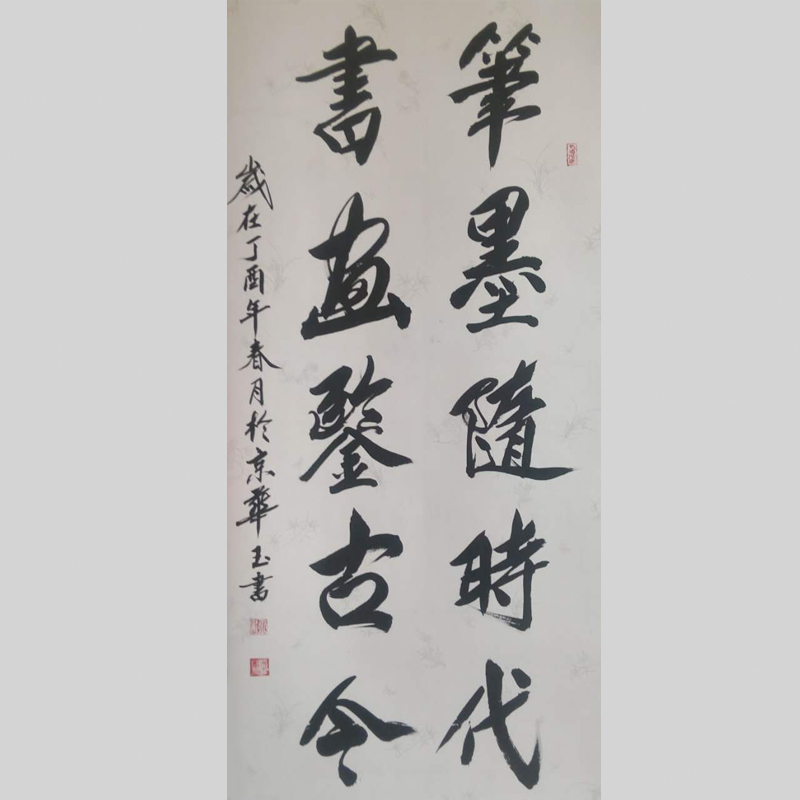 筆墨隨時代
書畫鑒古今
歲在丁酉年春月於京華玉書